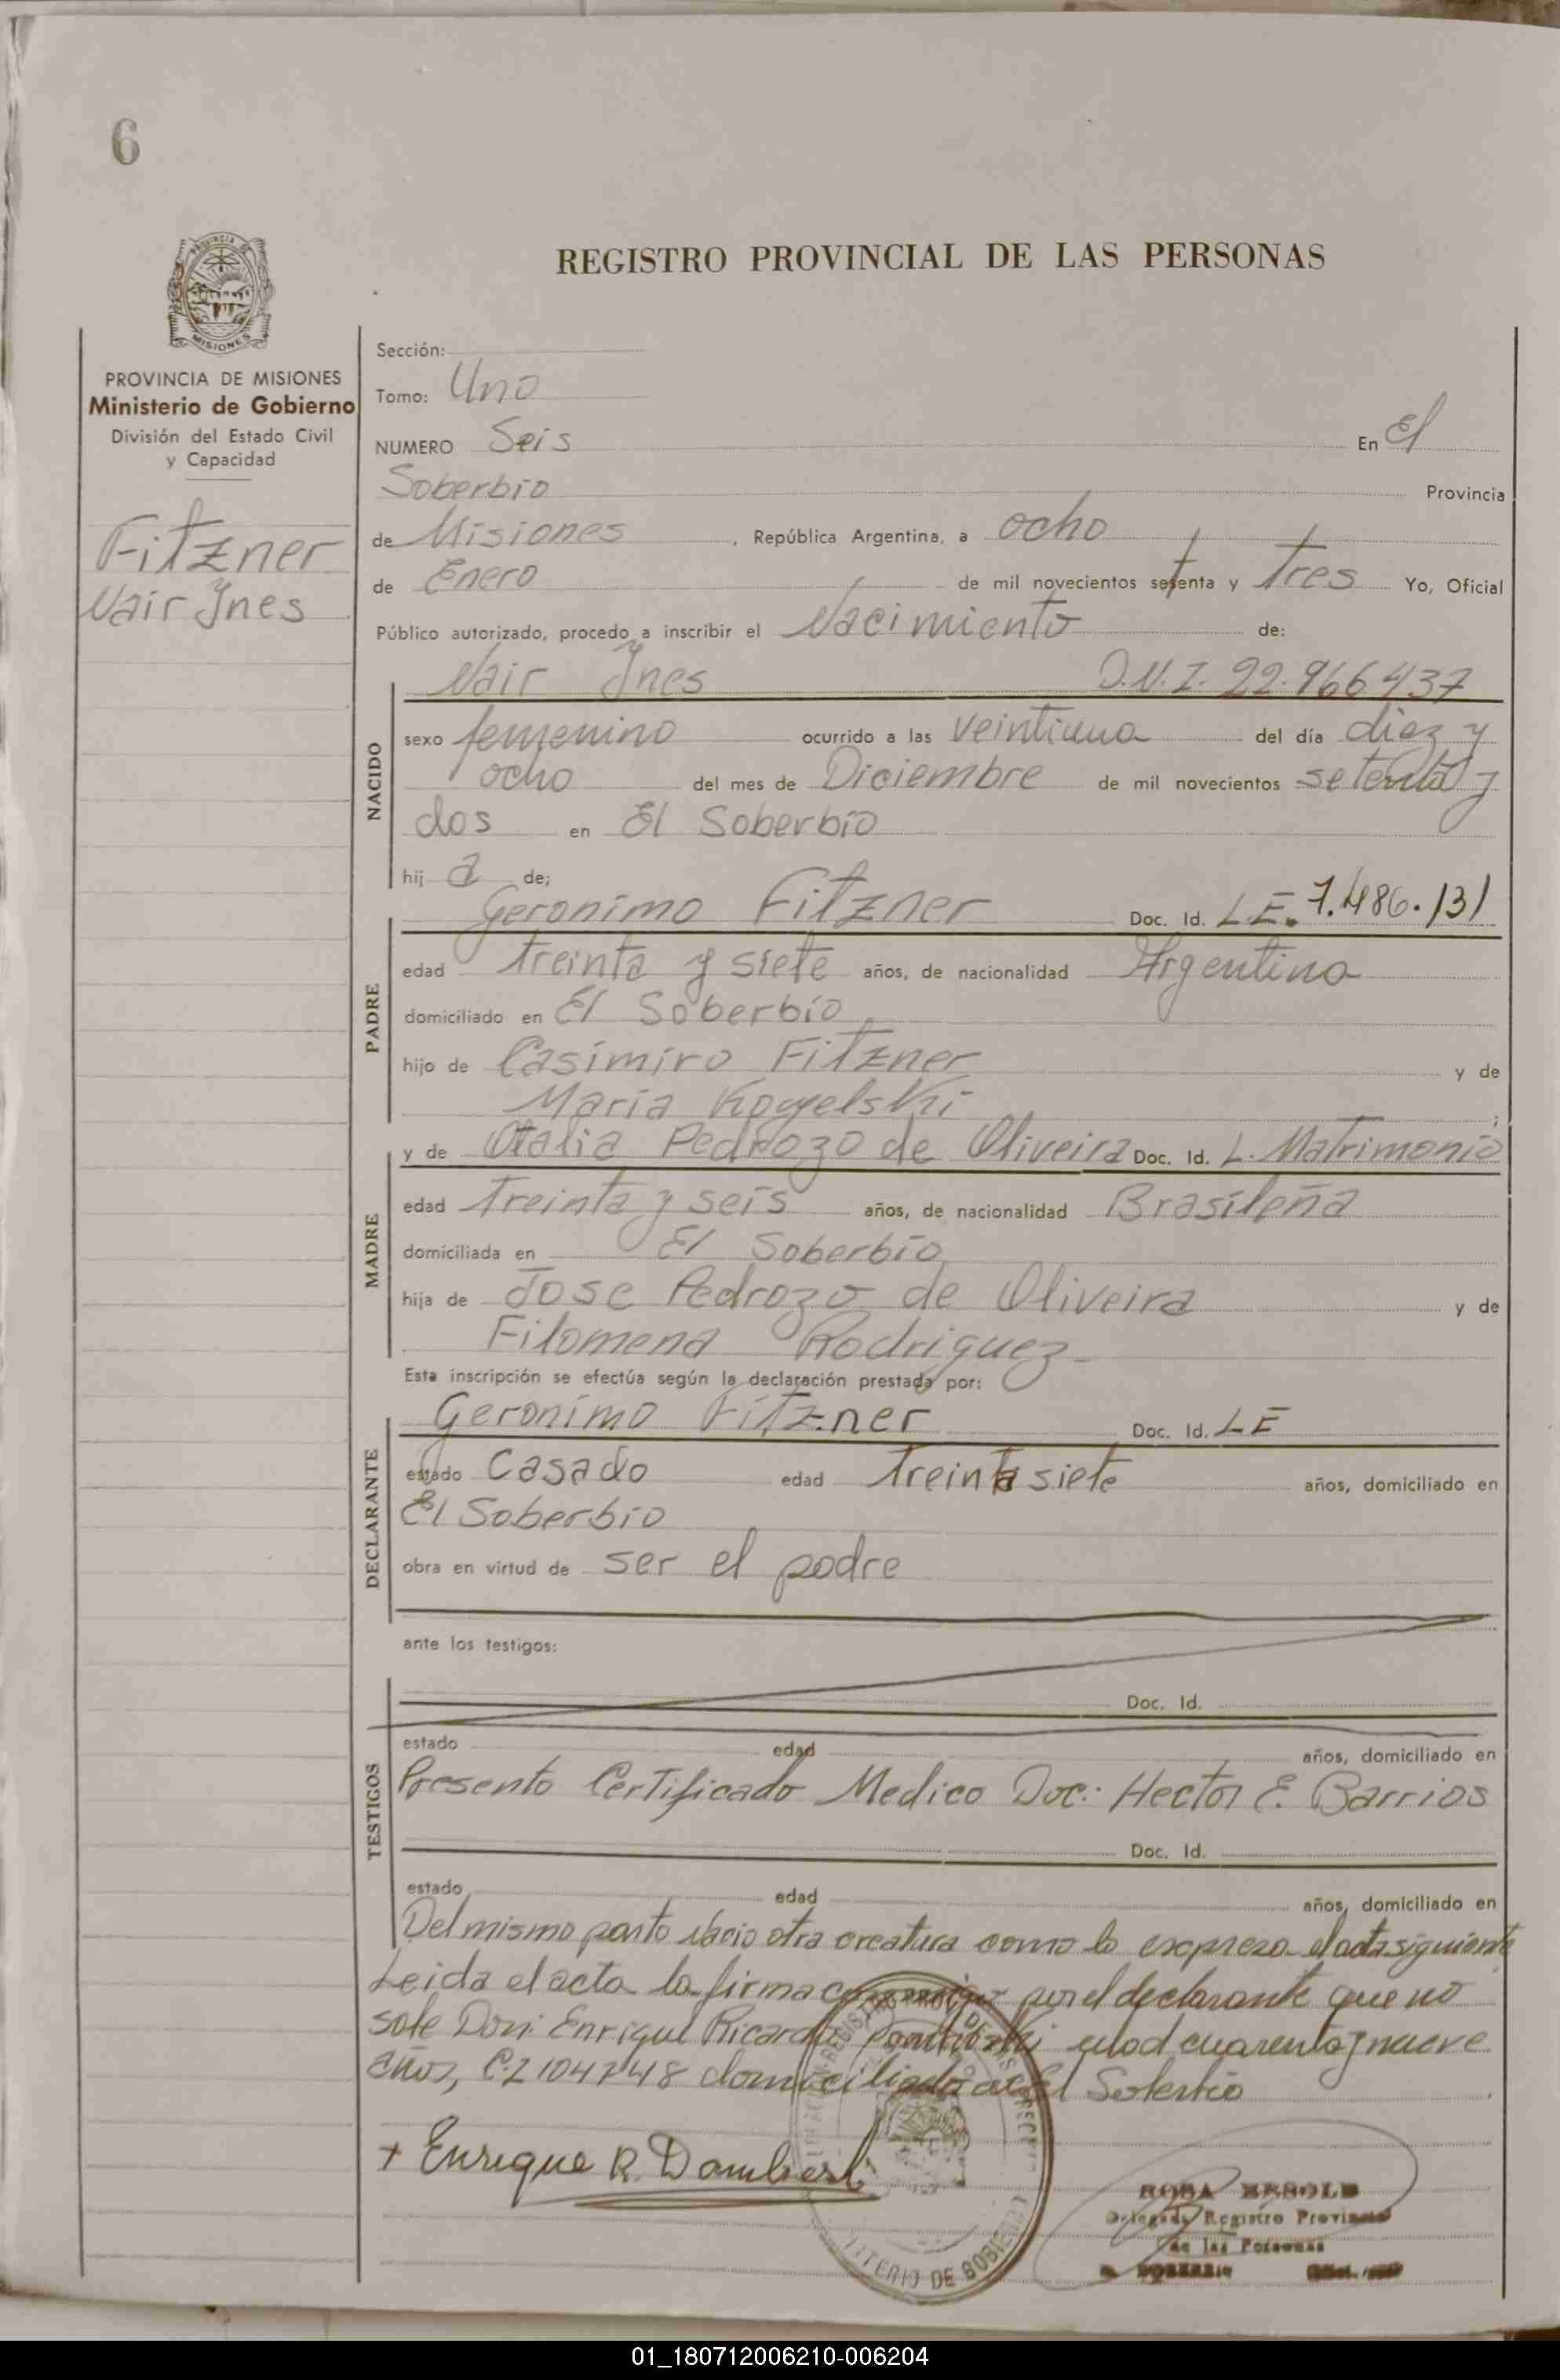 6
PROVINCIA DE MISIONES
Ministerio de Gobierno
División del Estado Civil
y Capacidad
Fitzner
Nair Ynes
REGISTRO PROVINCIAL DE LAS PERSONAS
Sección:
Tomo: Uno
NUMERO Seis En El
Soberbio Provincia
de Misiones, República Argentina, a ocho
de Enero de mil novecientos setenta y tres Yo, Oficial
Público autorizado, procedo a inscribir el Nacimiento de:
Nair Ynes D.N.I. 22.966437
NACIDO
sexo femenino ocurrido a las veintiuna del día diez y
ocho del mes de Diciembre de mil novecientos setenta y
dos en El Soberbio
hij a de;
Geronimo Fitzner Doc. Id. L.E. 7.486.131
PADRE
edad treinta y siete años, de nacionalidad Argentina
domiciliado en El Soberbio
hijo de Casimiro Fitzner y de
Maria ;
y de Otalia Pedrozo de Oliveira Doc. Id. L. Matrimonio
MADRE
edad treinta y seis años, de nacionalidad Brasileña
domiciliada en El Soberbio
hija de Jose Pedrozo de Oliveira y de
Filomena Rodriguez
Esta inscripción se efectúa según la declaración prestada por:
Geronimo Fitzner Doc. Id. LE
DECLARANTE
estado Casado edad treinta siete años, domiciliado en
El Soberbio
obra en virtud de ser el padre
ante los testigos:
Doc. Id.
TESTIGOS
estado edad años, domiciliado en
Presento Certificado Medico Doc: Hector E. Barrios
Doc. Id.
estado edad años, domiciliado en
Del mismo parto Nacio otra creatura como lo expresa el acta siguiente
Leida el acta la firma por el declarante que no
sabe Don: Enrique Ricardo edad cuarenta y nueve
años, C.I 104748 domiciliado en El Soberbio
+ Enrique R.
Registro Provincial
de las Personas
01_180712006210-006204